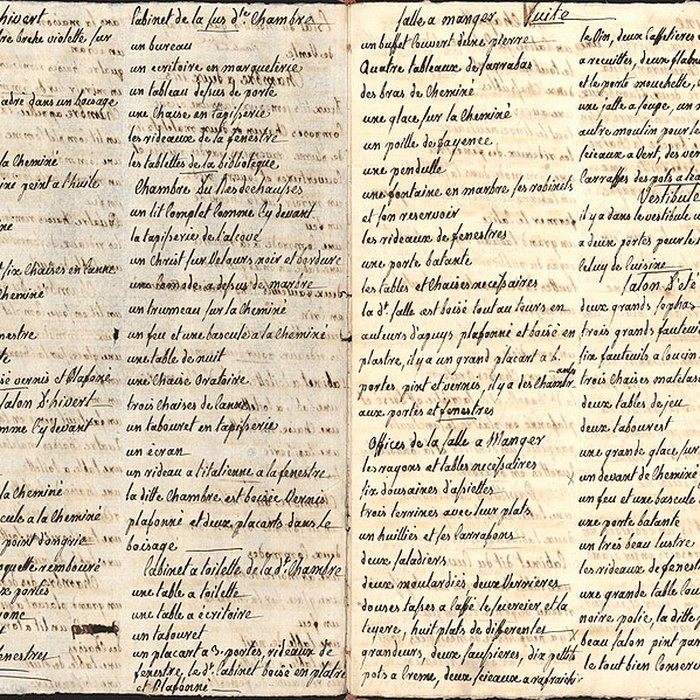 hivert
bre breke violette sur
adré dans un boisage
la Cheminé
re peint a l'huile
ne
six Chaises en Canne
Cheminé
nestre
te
sé vernis et Plafoné
Salon D'hivert
omme Cy devant
la Cheminé
cule a la Cheminé
point d'ongrie
oquette rembouré
x portes
yone
fenestres
Cabinet de la sus dte Chambre
un bureau
un ecritoire en marqueterie
un tableau desus de porte
une Chaise en tapiserie
les rideaux de la fenestre
les tablettes de la biblioteque
Chambre Du Resdechausses
un lit Complet Comme Cy devant
la tapiserie de l'alcové
un Christ sur Velours noir et bordure
une Comode a desus de marbre
un trumeau sur la Cheminé
un feu et une bascule a la Cheminé
une table de nuit
une Chaise Oratoire
trois Chaises de Cannes
un tabouret en tapiserie
un écran
un rideau a l'italienne a la fenestre
la ditte Chambre est boisée Vernis
plafonné et deux placarts dans le
boisage
Cabinet a toilette de la de Chambre
une table a toilette
une table a écritoire
un tabouret
un placart a 3 portes, rideaux de
fenestre, le dt Cabinet boisé en platre
et Plafonné
salle a manger Suite
un buffet Couvert de une pierre
Quatre tableaux de
des bras de Cheminé
une glace sur la Cheminé
un poille de fayence
une pendulle
une fontaine en marbre ses robinets
et son reservoir
les rideaux de fenestres
une porte batante
les tables et Chaises necessaires
la de salle est boisé tout au tours en
auteurs d'apuys plafonné et boisé en
plastre, il y a un grand placart a 2
portes pint et vernis, il y a des Chambranls
aux portes et fenestres
Offices de la salle a Manger
les rayons et tables necessaires
six dousaines d'assiettes
trois terrines avec leur plats
un huillies et ses Carrafons
deux saladiers
deux moutardiés deux Verrieres
douses tasses a Caffé le sucrier et la
teyere, huit plats de differentes
grandeurs, deux sausieres, dix petits
pots a Creme, deux seieaux a rafraichir
deux Caffetieres
a recuittes, deux flam
et le porte mouchette,
une jatte a soupe, un
autre moulin pour
seieaux a Vert, des ver
Carraffes des pots a
Vestibule
il y a dans le vestibule
a deux portes pour
celuy de Cuisine
Salon D'eté
deux grands sophas
trois grands fauteuils
six fauteuils a Cousin
trois chaises matelas
deux tables de jeu
deux tabourest
une grande glace sur
un devant de Cheminé
un feu et une bascule
une porte batante
un tres beau lustre
les rideaux de fenest
une grande table Cou
noire polie, la ditte
beau salon pint pa
le tout bien Conserv